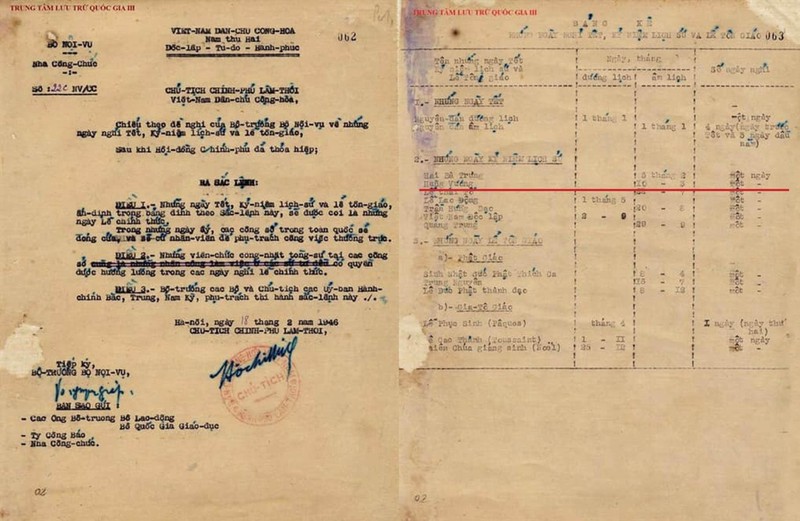 TRUNG TÂM LƯU TRỮ QUỐC GIA III
VIỆT-NAM DÂN-CHỦ CỘNG-HÒA
Năm thứ Hai
Độc-lập - Tự-do - Hạnh-phúc
062
BỘ NỘI-VỤ
Nha Công-Chức
Số : 22C NV/CC
CHỦ-TỊCH CHÍNH-PHỦ LÂM-THỜI
Việt-Nam Dân-chủ Cộng-hòa,
Chiểu theo đề nghị của Bộ-trưởng Bộ Nội-vụ về những
ngày nghỉ Tết, Kỷ-niệm lịch-sử và lễ tôn-giáo,
Sau khi Hội-đồng Chính-phủ đã thỏa hiệp;
RA SẮC LỆNH:
ĐIỀU 1.- Những ngày Tết, Kỷ-niệm lịch-sử và lễ tôn-giáo,
ấn-định trong bảng đính theo Sắc-lệnh này, sẽ được coi là những
ngày Lễ chính thức.
Trong những ngày ấy, các công sở trong toàn quốc sẽ
đóng cửa, và sẽ cử nhân-viên để phụ-trách công việc thường trực.
ĐIỀU 2.- Những viên-chức công-nhật tòng-sự tại các công
sở có quyền
được hưởng lương trong các ngày nghỉ lễ chính thức.
ĐIỀU 3.- Bộ-trưởng các Bộ và Chủ-tịch các Uỷ-ban Hành-
chính Bắc, Trung, Nam Kỳ, phụ-trách thi hành sắc-lệnh này ./.
Hà-nội, ngày 18 tháng 2 năm 1946
CHỦ-TỊCH CHÍNH-PHỦ LÂM-THỜI,
Tiếp ký,
BỘ-TRƯỞNG BỘ NỘI-VỤ,
HồchíMinh
CHỦ-TỊCH
BẢN SAO GỬI :
- Các Ông Bộ-trưởng Bộ Lao-động
Bộ Quốc Gia Giáo-dục
- Ty Công Báo
- Nha Công-chức.
02
TRUNG TÂM LƯU TRỮ QUỐC GIA III
BẢNG KÊ
NHỮNG NGÀY NGHỈ TẾT, KỶ NIỆM LỊCH SỬ VÀ LỄ TÔN GIÁO
063
Tên những ngày Tết
Kỷ niệm lịch sử và
Lễ Tôn giáo
Ngày, tháng
dương lịch
âm lịch
Số ngày nghỉ
1.- NHỮNG NGÀY TẾT
Nguyên-đán dương lịch 1 tháng 1 một ngày
Nguyên đán âm lịch 1 tháng 1 4 ngày(ngày trước
Tết và 3 ngày đầu
năm)
2.- NHỮNG NGÀY KỶ NIỆM LỊCH SỬ
Hai Bà Trưng 6 tháng 2 một ngày
Hùng Vương, 10 - 3 một -
Lê Thái Tổ một -
Lễ Lao Động 1 tháng 5 một -
Trần Hưng Đạo 20 - 8 một -
Việt Nam Độc lập 2 - 9 một -
Quang Trung 29 - 9 một -
3.- NHỮNG NGÀY LỄ TÔN GIÁO
a)- Phật Giáo
Sinh Nhật của Phật Thích Ca 8 - 4 một -
Trung Nguyên 15 - 7 một -
Lễ Đức Phật thành đạo 8 - 12 một -
b)- Gia-Tô Giáo
Lễ Phục Sinh (Pâques) tháng 4 1 ngày (ngày thứ
hai)
Lễ Các Thánh (Toussaint) 1 - 11 một ngày
Thiên Chúa giáng sinh (Noel) 25 - 12 một -
02